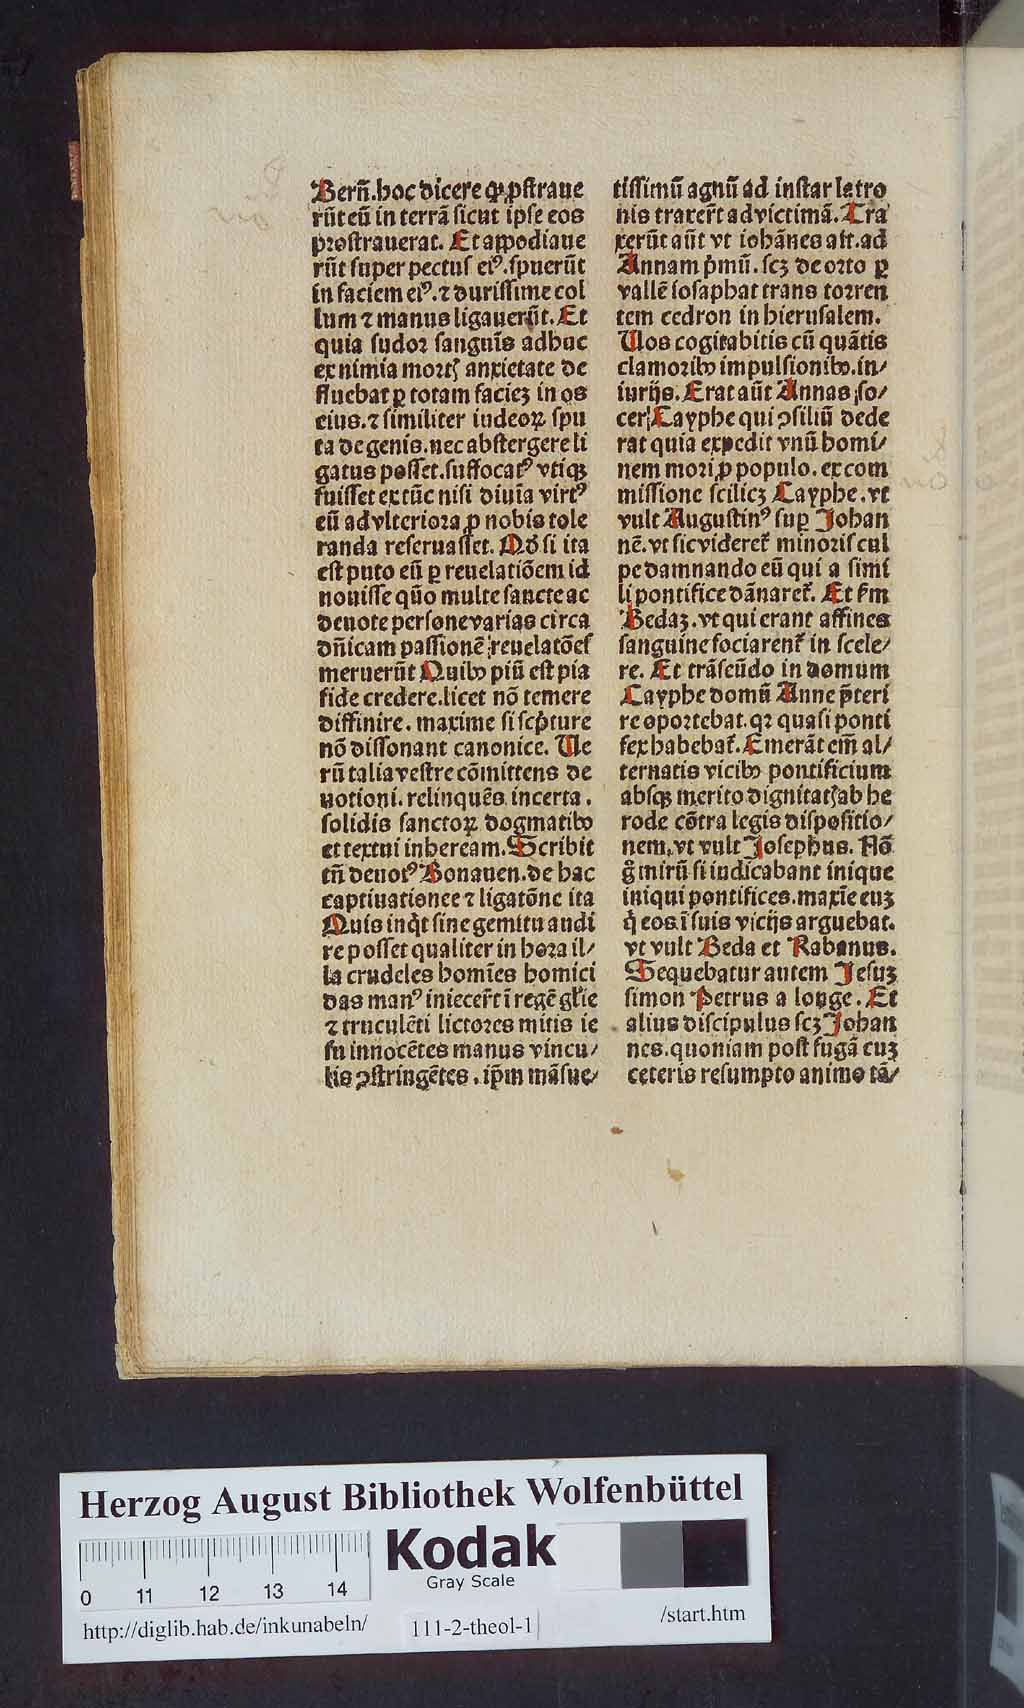 Bern̄.hoc dicere qꝙ ꝓſtraue
rūt eū in terrā ſicut ipſe eos
proſtrauerat. Et appodiaue
rūt ſuper pectuſ ei⁹.ſpuerūt
in faciem ei⁹.⁊ duriſſime col
lum ⁊ manus ligauerūt. Et
quia ſudor ſanguīs adhuc
ex nimia mortꝭ anxietate de
fluebat ꝑ totam faciez in os
eius.⁊ ſimiliter iudeoꝝ ſpu
ta de genis.nec abſtergere li
gatus poſſet.ſuffocat⁹ vtiqꝫ
fuiſſet ex tūc niſi diuīa virt⁹
eū ad vlteriora ꝓ nobis tole
randa reſeruaſſet. Qd̄ ſi ita
eſt puto eū ꝑ reuelatiōem id
nouiſſe qūo multe ſancte ac
deuote perſone varias circa
dn̄icam paſſionē reuelatōeſ
meruerūt Quibꝰ piū eſt pia
fide credere.licet nō temere
diffinire. maxime ſi ſcp̄ture
nō diſſonant canonice. Ue
rū talia veſtre cōmittens de
uotioni. relinquēs incerta.
ſolidis ſanctoꝝ dogmatibꝰ
et textui inheream. Scribit
tn̄ deuot⁹ Bonauen.de hac
captiuatione e ⁊ ligatōne ita
Quis inq̇t ſine gemitu audi
re poſſet qualiter in hora il/
la crudeles homīes homici
das man⁹ iniecer̄t ī regē gl̄ie
⁊ truculēti lictores mitis ie
ſu innocētes manus vincu/
lis ꝯſtringētes. ip̄m māſue/
tiſſimū agnū ad inſtar latro
nis traxer̄t ad victimā. Tra
xerūt aūt vt iohānes aſt.ad
Annam p̄mū. ſcꝫ de orto ꝑ
vallē ioſaphat trans torren
tem cedron in hieruſalem.
Uos cogitabitis cū quātis
clamoribꝰ impulſionibꝰ.in/
iurijs. Erat aūt Annas ſo/
cer Cayphe qui ꝯſiliū dede
rat quia expedit vnū homi/
nem mori ꝓ populo. ex com
miſſione ſcilicꝫ Cayphe. vt
vult Auguſtin⁹ ſuꝑ Johan
nē. vt ſic videret̄ minoriſ cul
pe damnando eū qui a ſimi
li pontifice dānaret̄. Et ẜm
Bedaꝫ. vt qui erant affines
ſanguine ſociarent̄ in ſcele/
re. Et trāſeūdo in domum
Cayphe domū Anne p̄teri
re oportebat. qꝛ quaſi ponti
fex habebat̄. Emerāt em̄ al/
ternatis vicibꝰ pontificium
abſqꝫ merito dignitatꝭ ab he
rode cōtra legis diſpoſitio/
nem. vt vult Joſephus. Nō
g̊ mirū ſi iudicabant inique
iniqui pontifices. maxīe euꝫ
q̇ eos ī ſuis vicijs arguebat.
vt vult Beda et Rabanus.
Sequebatur autem Jeſuꝫ
ſimon Petrus a longe. Et
alius diſcipulus ſcꝫ Johan
nes. quoniam poſt fugā cuꝫ
ceteris reſumpto animo tā/
Herzog August Bibliothek Wolfenbüttel
Kodak
Gray Scale
0 11 12 13 14
http://diglib.hab.de/inkunabeln/
111-2-theol-1
/start.htm